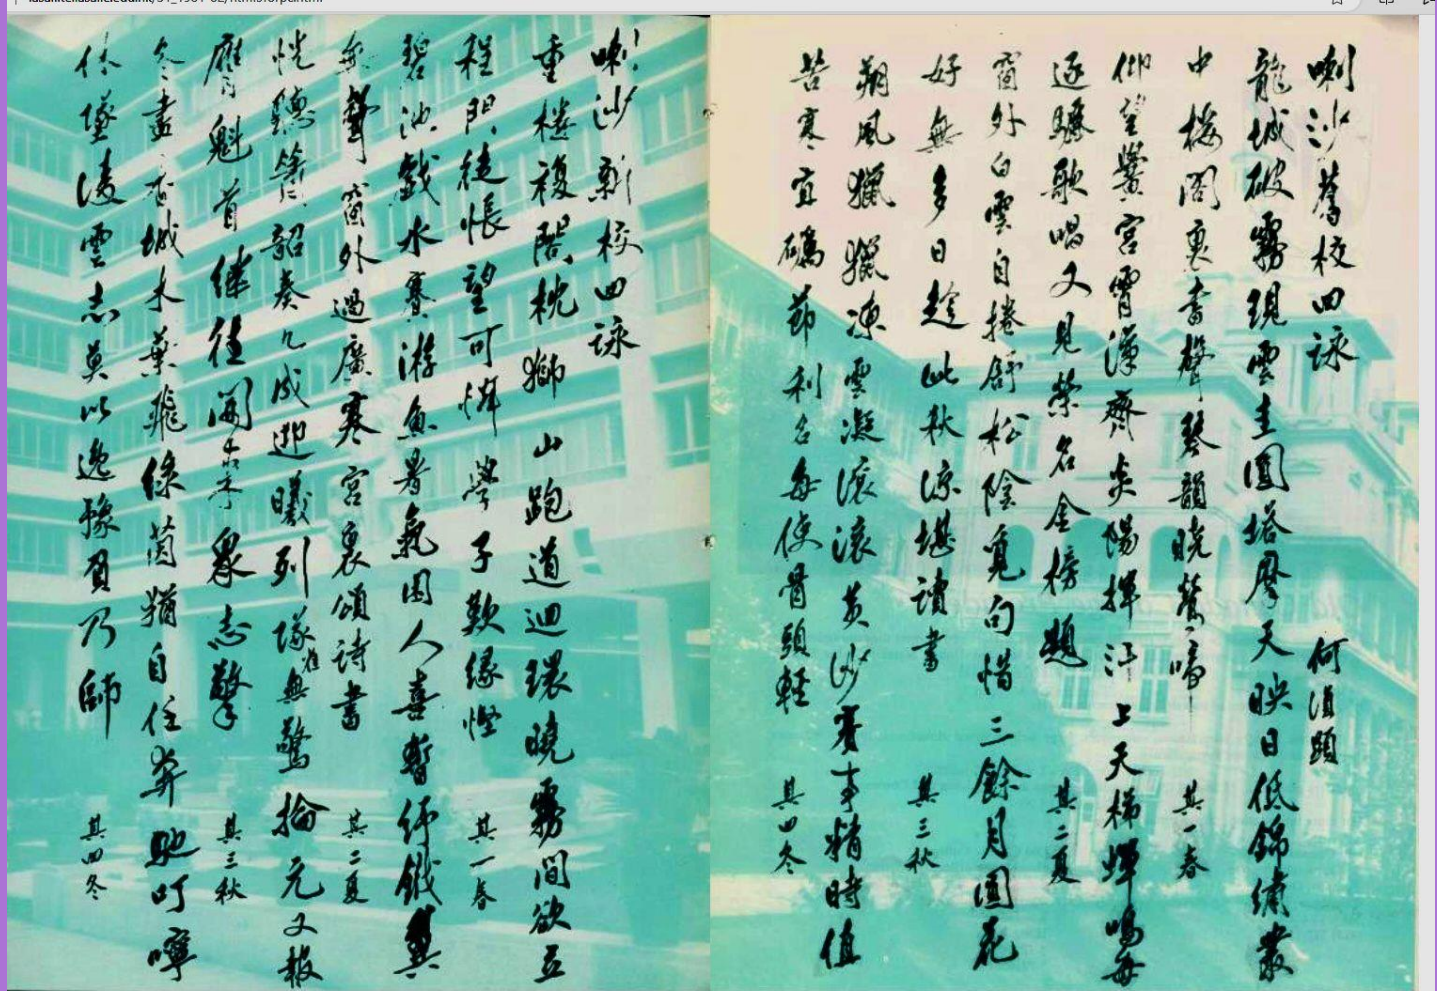 喇沙舊校四詠 何
龍城破霧現雲圭圓塔摩天映日低錦繡叢
中樓閣裏書聲琴韻曉鶯啼 其一春
仰望黌宮霄漢齊炎陽揮汗上天梯蟬鳴每
逐驪歌唱又見榮名金榜題 其二夏
窗外白雲自捲舒松陰覓句惜三餘月圓花
好無多日趁此秋涼堪讀書 其三秋
朔風獵獵凍雲凝滾滾黃沙賽事精時值
苦寒宜礪節利名每使骨頭輕 其四冬
喇沙新校四詠
重樓複閣枕獅山跑道迴環曉霧間欲立
程門徒悵望可憐學子歎緣慳 其一春
碧池戲水賽游魚暑氣困人喜暫紓鐵翼
無聲窗外過廣寒宮裏頌詩書 其二夏
恍聽簫韶奏九成迎曦列隊雁無驚掄元又報
膺魁首繼往開來眾志擎 其三秋
冬盡香城木葉飛綠茵猶自任奔馳叮嚀
休墜淩雲志莫以逸豫負乃師 其四冬